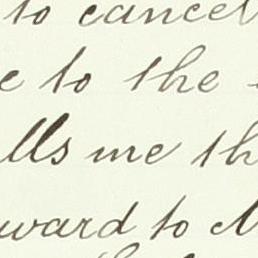 to cancel
e to the
lls me th
ward to
the